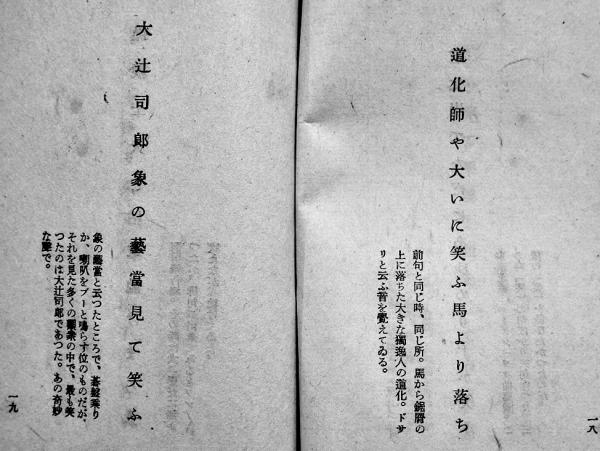 道化師や大いに笑ふ馬より落ち
前句と同じ時、同じ所。馬から鋸屑の
上に落ちた大きな獨逸人の道化。ドサ
リと云ふ音を覺えてゐる。
一八
大辻司郎象の藝當見て笑ふ
象の藝當と云つたところで、碁盤乘り
か、喇叭をブーと鳴らす位のものだが、
それを見た多くの觀衆の中で、最も笑
つたのは大辻司郎であつた。あの奇妙
な聲で。
一九